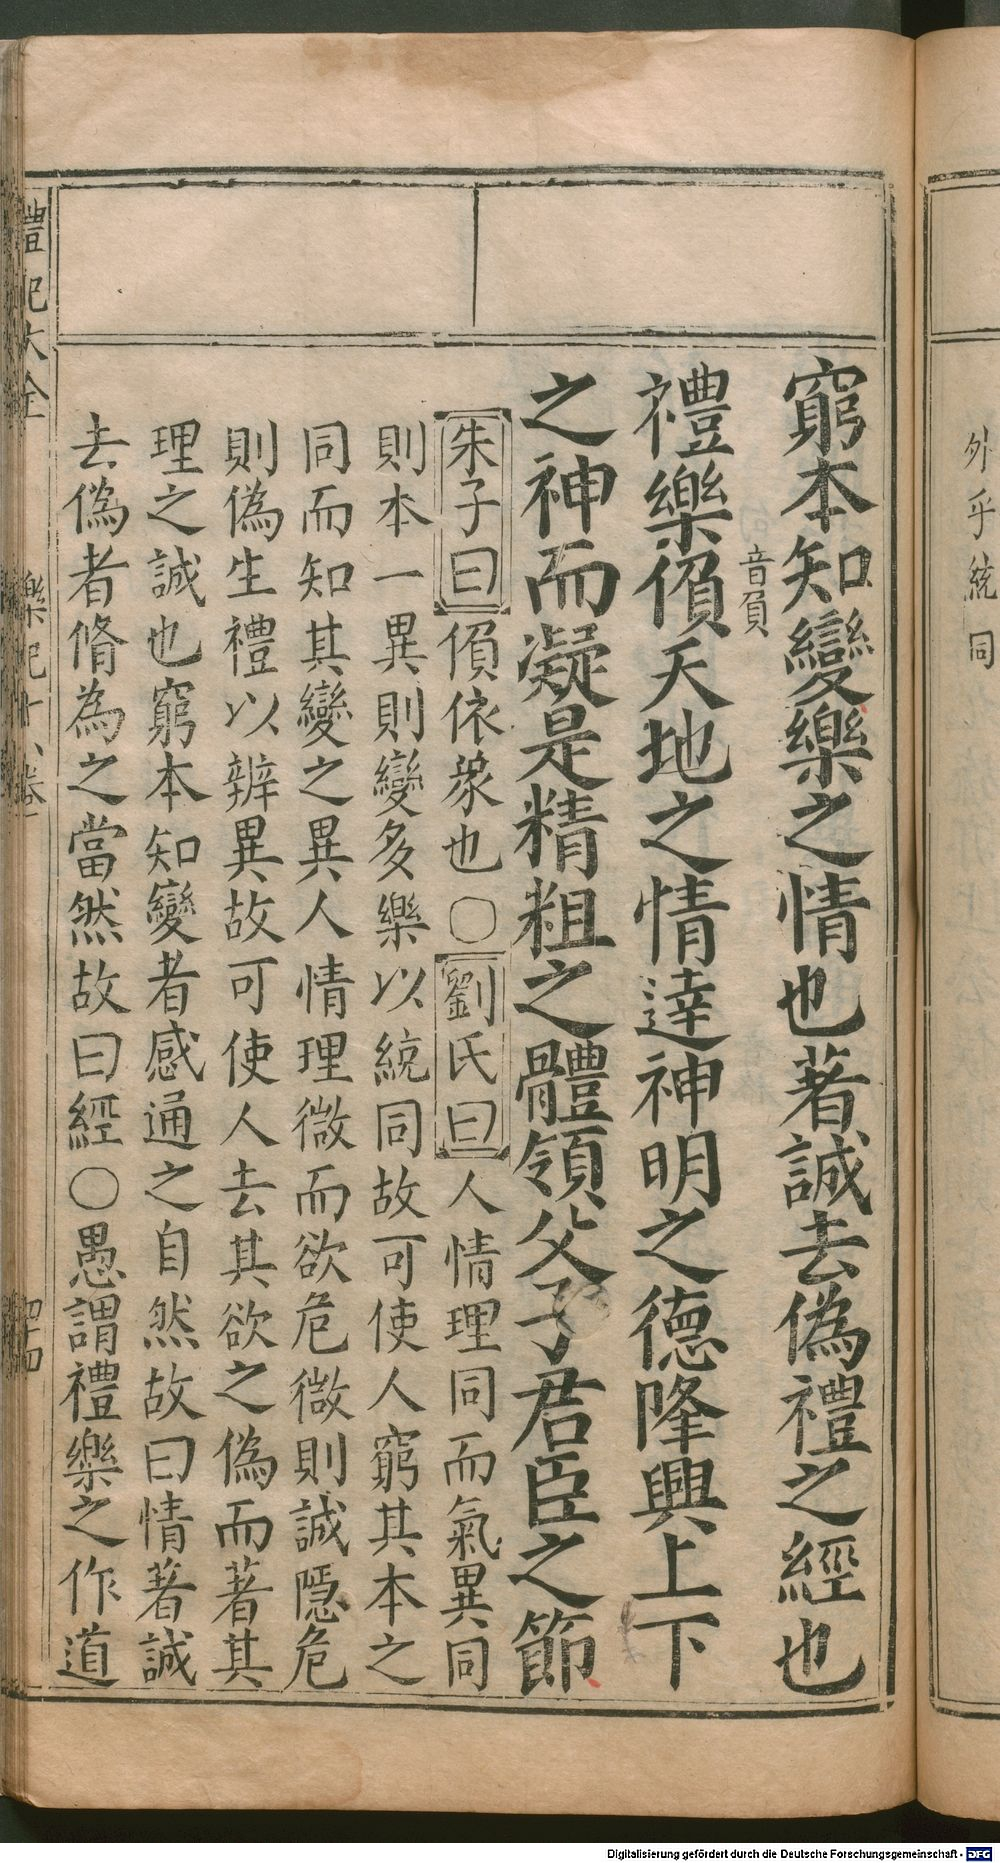 窮本知變樂之情也著誠去偽禮之經也
音負
禮樂偩天地之情達神明之德隆興上下
之神而凝是精粗之體領父子君臣之節
朱子曰偩依象也○劉氏曰人情理同而氣異同
則本一異則變多樂以統同故可使人窮其本之
同而知其變之異人情理微而欲危微則誠隱危
則偽生禮以辨異故可使人去其欲之偽而著其
理之誠也窮本知變者感通之自然故曰情著誠
去偽者脩為之當然故曰經○愚謂禮樂之作道
禮記大全 樂記十八卷 四十四
外乎統同
Digitalisierung gefördert durch die Deutsche Forschungsgemeinschaft - DFG